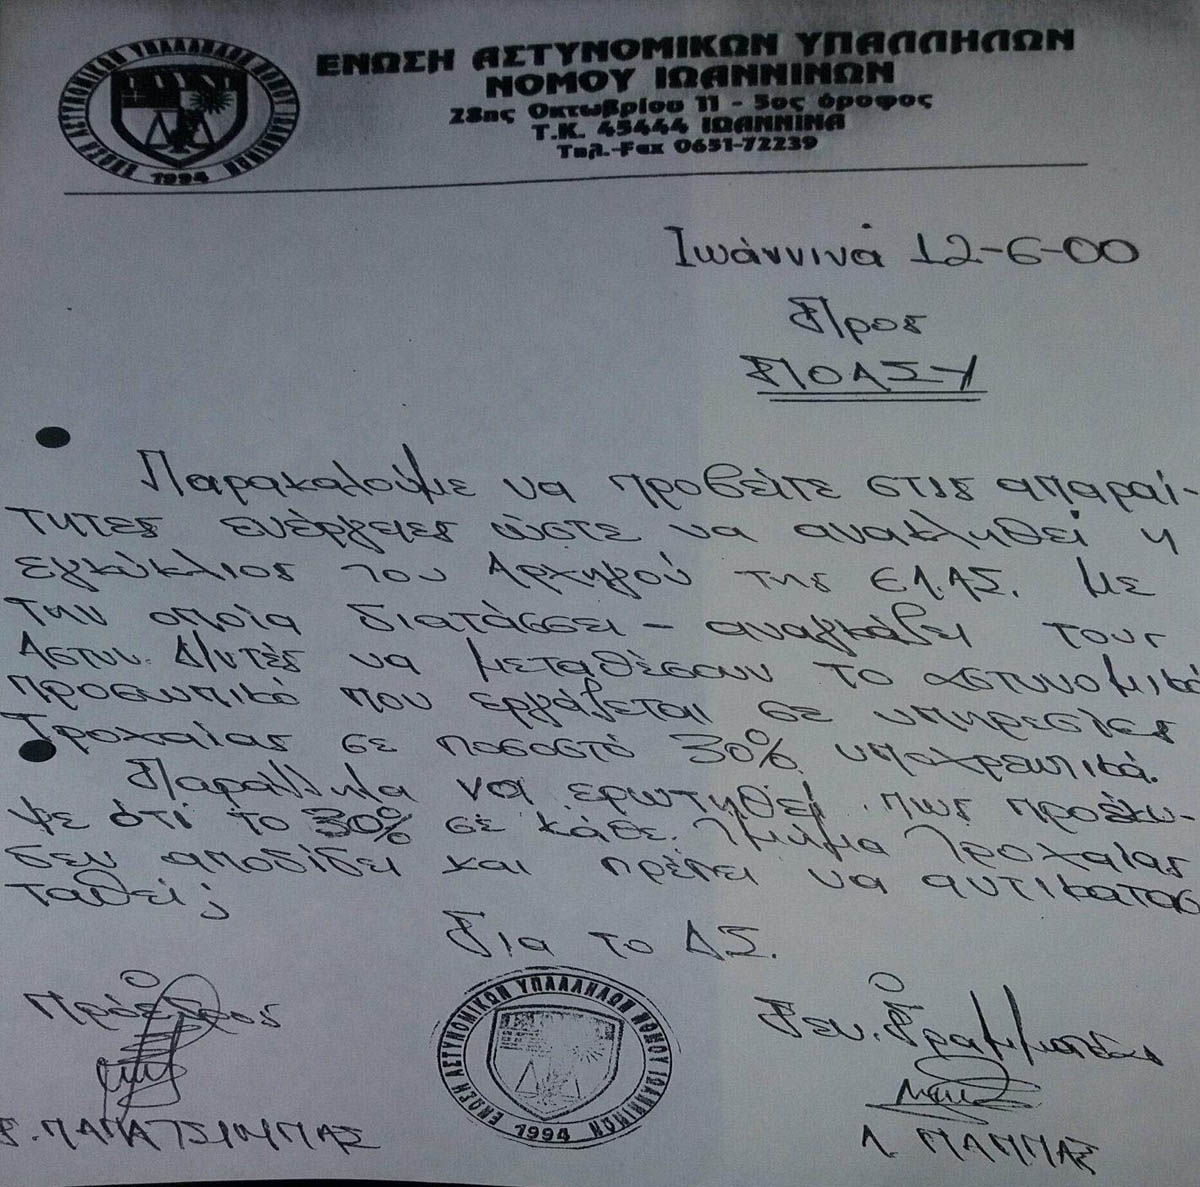 ΕΝΩΣΗ ΑΣΤΥΝΟΜΙΚΩΝ ΥΠΑΛΛΗΛΩΝ ΝΟΜΟΥ ΙΩΑΝΝΙΝΩΝ
1994
ΕΝΩΣΗ ΑΣΤΥΝΟΜΙΚΩΝ ΥΠΑΛΛΗΛΩΝ
ΝΟΜΟΥ ΙΩΑΝΝΙΝΩΝ
28ης Οκτωβρίου 11 - 5ος όροφος
Τ.Κ. 45444 ΙΩΑΝΝΙΝΑ
Τηλ.-Fax 0651-72239
Ιωάννινα 12-6-00
Προς
ΠΟΑΣΥ
Παρακαλούμε να προβείτε στις απαραί-
τητες ενέργειες ώστε να ανακληθεί η
εγκύκλιος του Αρχηγού της ΕΛ.ΑΣ. με
την οποία διατάσσει - αναγκάζει τους
Αστυν. Δ/ντές να μεταθέσουν το αστυνομικό
προσωπικό που εργάζεται σε υπηρεσίες
Τροχαίας σε ποσοστό 30% υποχρεωτικά.
Παράλληλα να ερωτηθεί πως προέκυ-
ψε ότι το 30% σε κάθε Τμήμα Τροχαίας
δεν αποδίδει και πρέπει να αντικατασ
ταθεί;
Για το Δ.Σ.
Ο
Πρόεδρος
Ο
Γεν. Γραμματέας
ΕΝΩΣΗ ΑΣΤΥΝΟΜΙΚΩΝ ΥΠΑΛΛΗΛΩΝ ΝΟΜΟΥ ΙΩΑΝΝΙΝΩΝ
1994
Λ. ΠΑΠΠΑΣ